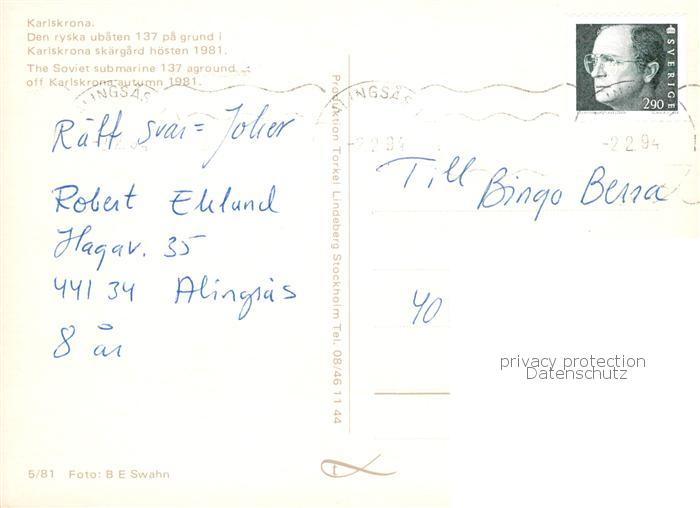 Karlskrona.
Den ryska ubåten 137 på grund i
Karlskrona skärgård hösten 1981.
The Soviet submarine 137 aground
off Karlskrona autumn 1981.
ALINGSÅS
ALINGSÅS
SVERIGE
290
-2.2.94
-2.2.94
Rätt svar = Joker
Robert Eklund
Hagav. 35
441 34 Alingsås
8 år
Produktion Torkel Lindeberg Stockholm Tel. 08/46 11 44
Till Bingo Berra
40
privacy protection
Datenschutz
5/81 Foto: B E Swahn